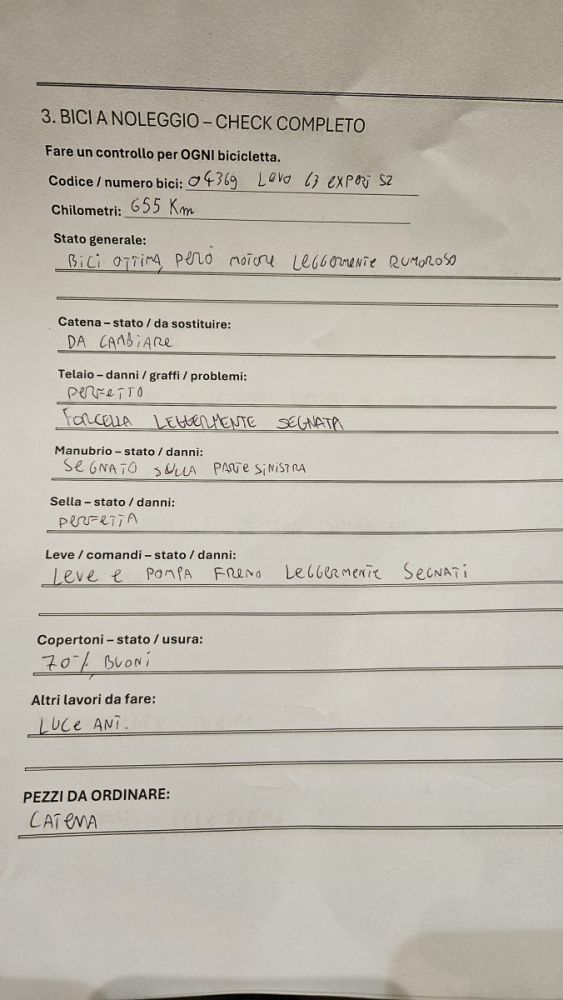 3. BICI A NOLEGGIO – CHECK COMPLETO
Fare un controllo per OGNI bicicletta.
Codice / numero bici: 04369
Chilometri: 655 Km
Stato generale:
BiCi OTTIMA, PERÒ MOTORE LEGGERMENTE RUMOROSO
Catena – stato / da sostituire:
DA CAMBIARE
Telaio – danni / graffi / problemi:
PERFETTO
FORCELLA LEGGERMENTE SEGNATA
Manubrio – stato / danni:
SEGNATO SULLA PARTE SINISTRA
Sella – stato / danni:
PERFETTA
Leve / comandi – stato / danni:
LEVE E POMPA FRENO LEGGERMENTE SEGNATI
Copertoni – stato / usura:
70% BUONI
Altri lavori da fare:
LUCE ANT.
PEZZI DA ORDINARE:
CATENA